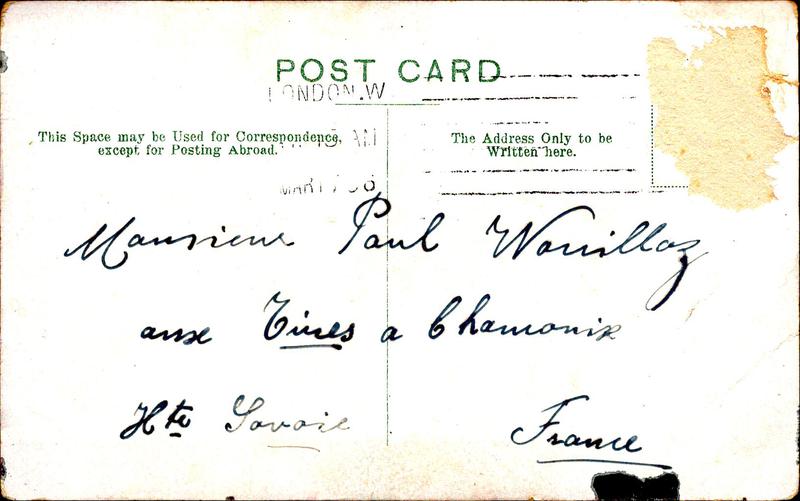 POST CARD
LONDON.W
This Space may be Used for Correspondence,
except for Posting Abroad.
15 AM
The Address Only to be
Written here.
MAR 17 08
Monsieur Paul Wouilloz
aux Tines a Chamonix
Hte Savoie
France